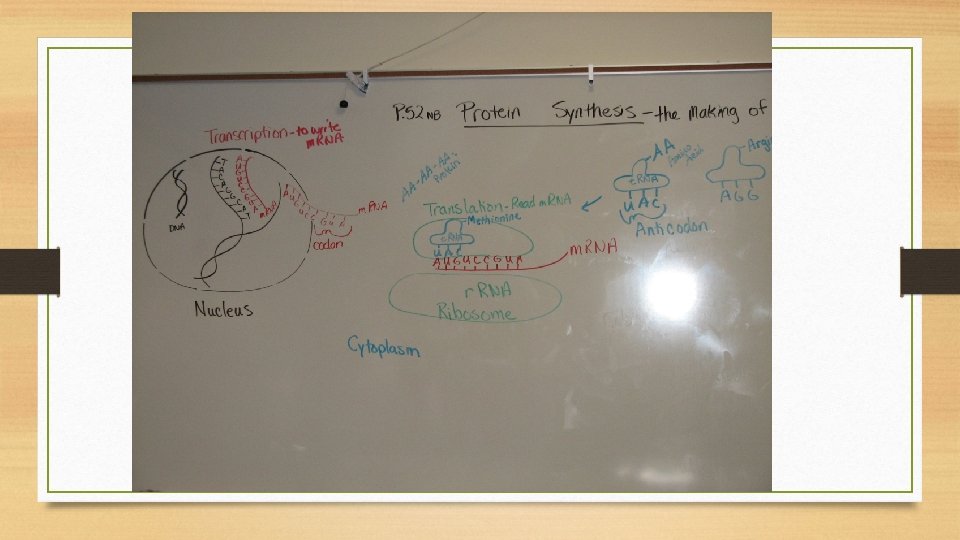 P.52 NB Protein Synthesis - the making of
Transcription - to write
mRNA
DNA
mRNA
mRNA
codon
Nucleus
AA-AA-AA-
Protein
Translation - Read mRNA
Methionine
tRNA
UAC
AUGUCCGUA
mRNA
rRNA
Ribosome
Cytoplasm
AA
Amino
Acid
tRNA
UAC
Anticodon
AGG